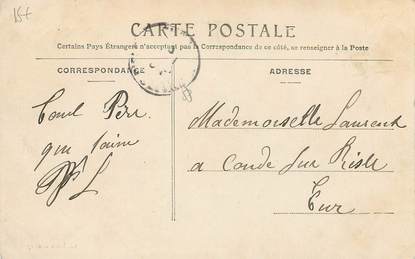 15+
CARTE POSTALE
Certains Pays Étrangers n'acceptant pas la Correspondance de ce côté, se renseigner à la Poste
CORRESPONDANCE
ADRESSE
qui t'aime
Mademoiselle Laurent
a Conde sur Risle
Eure